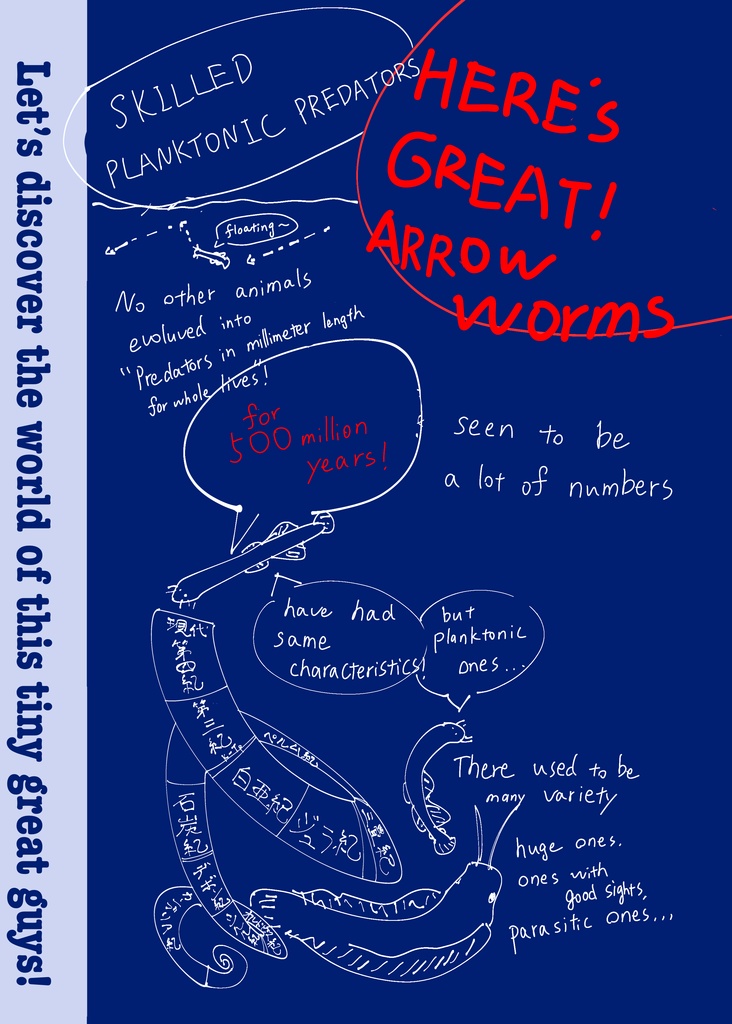 Let's discover the world of this tiny great guys!
SKILLED
PLANKTONIC PREDATORS
HERE'S
GREAT!
ARROW
worms
floating~
No other animals
evoluved into
"Predators in millimeter length
for whole lives"!
for
500 million
years!
seen to be
a lot of numbers
have had
same
characteristics!
but
planktonic
ones...
現代
第四紀
第三紀
白亜紀
ジュラ紀
三畳紀
ペルム紀
石炭紀
デボン紀
シルル紀
カンブリア紀
There used to be
many variety
huge ones.
ones with
good sights,
parasitic ones...